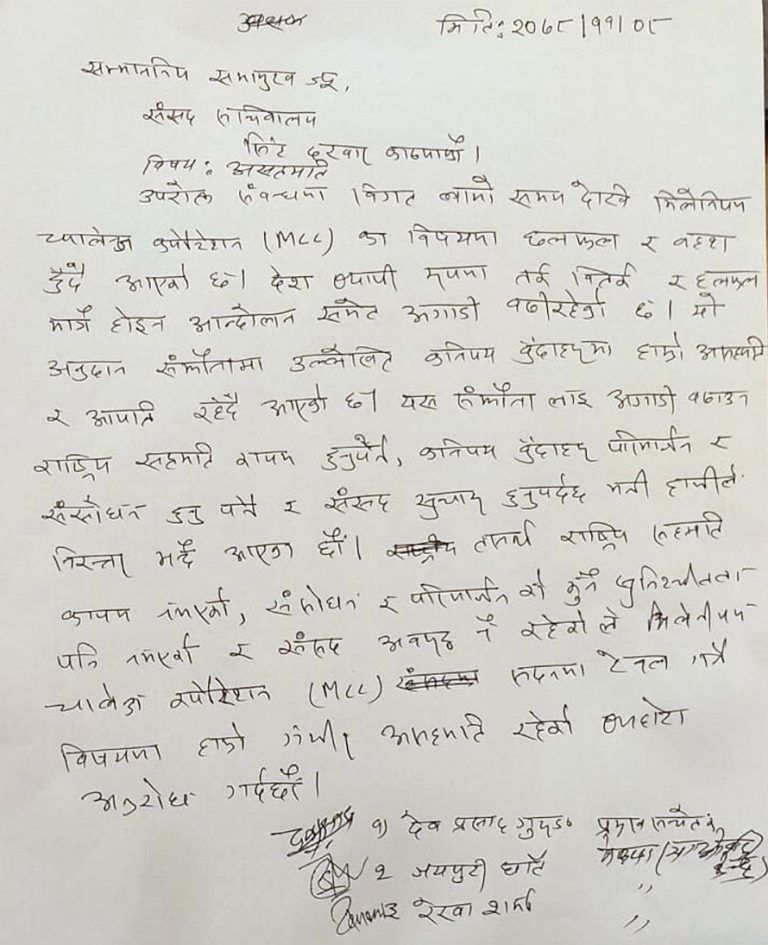 मिति: २०७८/११/०८
सम्माननिय सभामुख ज्यू,
संसद सचिवालय
सिंह दरवार काठमाण्डौ।
विषय: असहमति
उपरोक्त संबन्धमा विगत लामो समय देखि मिलेनियम
च्यालेञ्ज कर्पोरेशन (MCC) का विषयमा छलफल र वहश
हुँदै आएको छ। देश व्यापी रुपमा तर्क वितर्क र छलफल
मात्रै होइन आन्दोलन समेत अगाडी बढीरहेको छ। यो
अनुदान संझौतामा उल्लेखित कतिपय बुंदाहरुमा हाम्रो असहमति
र आपत्ति रहँदै आएको छ। यस संझौता लाइ अगाडी बढाउन
राष्ट्रिय सहमति कायम हुनुपर्ने, कतिपय बुंदाहरु परिमार्जन र
संसोधन हुनु पर्ने र संसद सुचारु हुनुपर्दछ भनी हामीले
निरन्तर भन्दै आएका छौं। तसर्थ राष्ट्रिय सहमति
कायम नभएको, संसोधन र परिमार्जन को कुनै सुनिश्चीतता
पनि नभएको र संसद अवरुद्ध नै रहेकोले मिलेनीयम
च्यालेञ्ज कर्पोरेशन (MCC) सदनमा टेबल गर्ने
विषयमा हाम्रो गंभीर असहमति रहेको व्यहोरा
अनुरोध गर्दछौं।
१) देव प्रसाद गुरुङ प्रमुख सचेतक
२ जयपुरी घर्ति "
रेखा शर्मा "